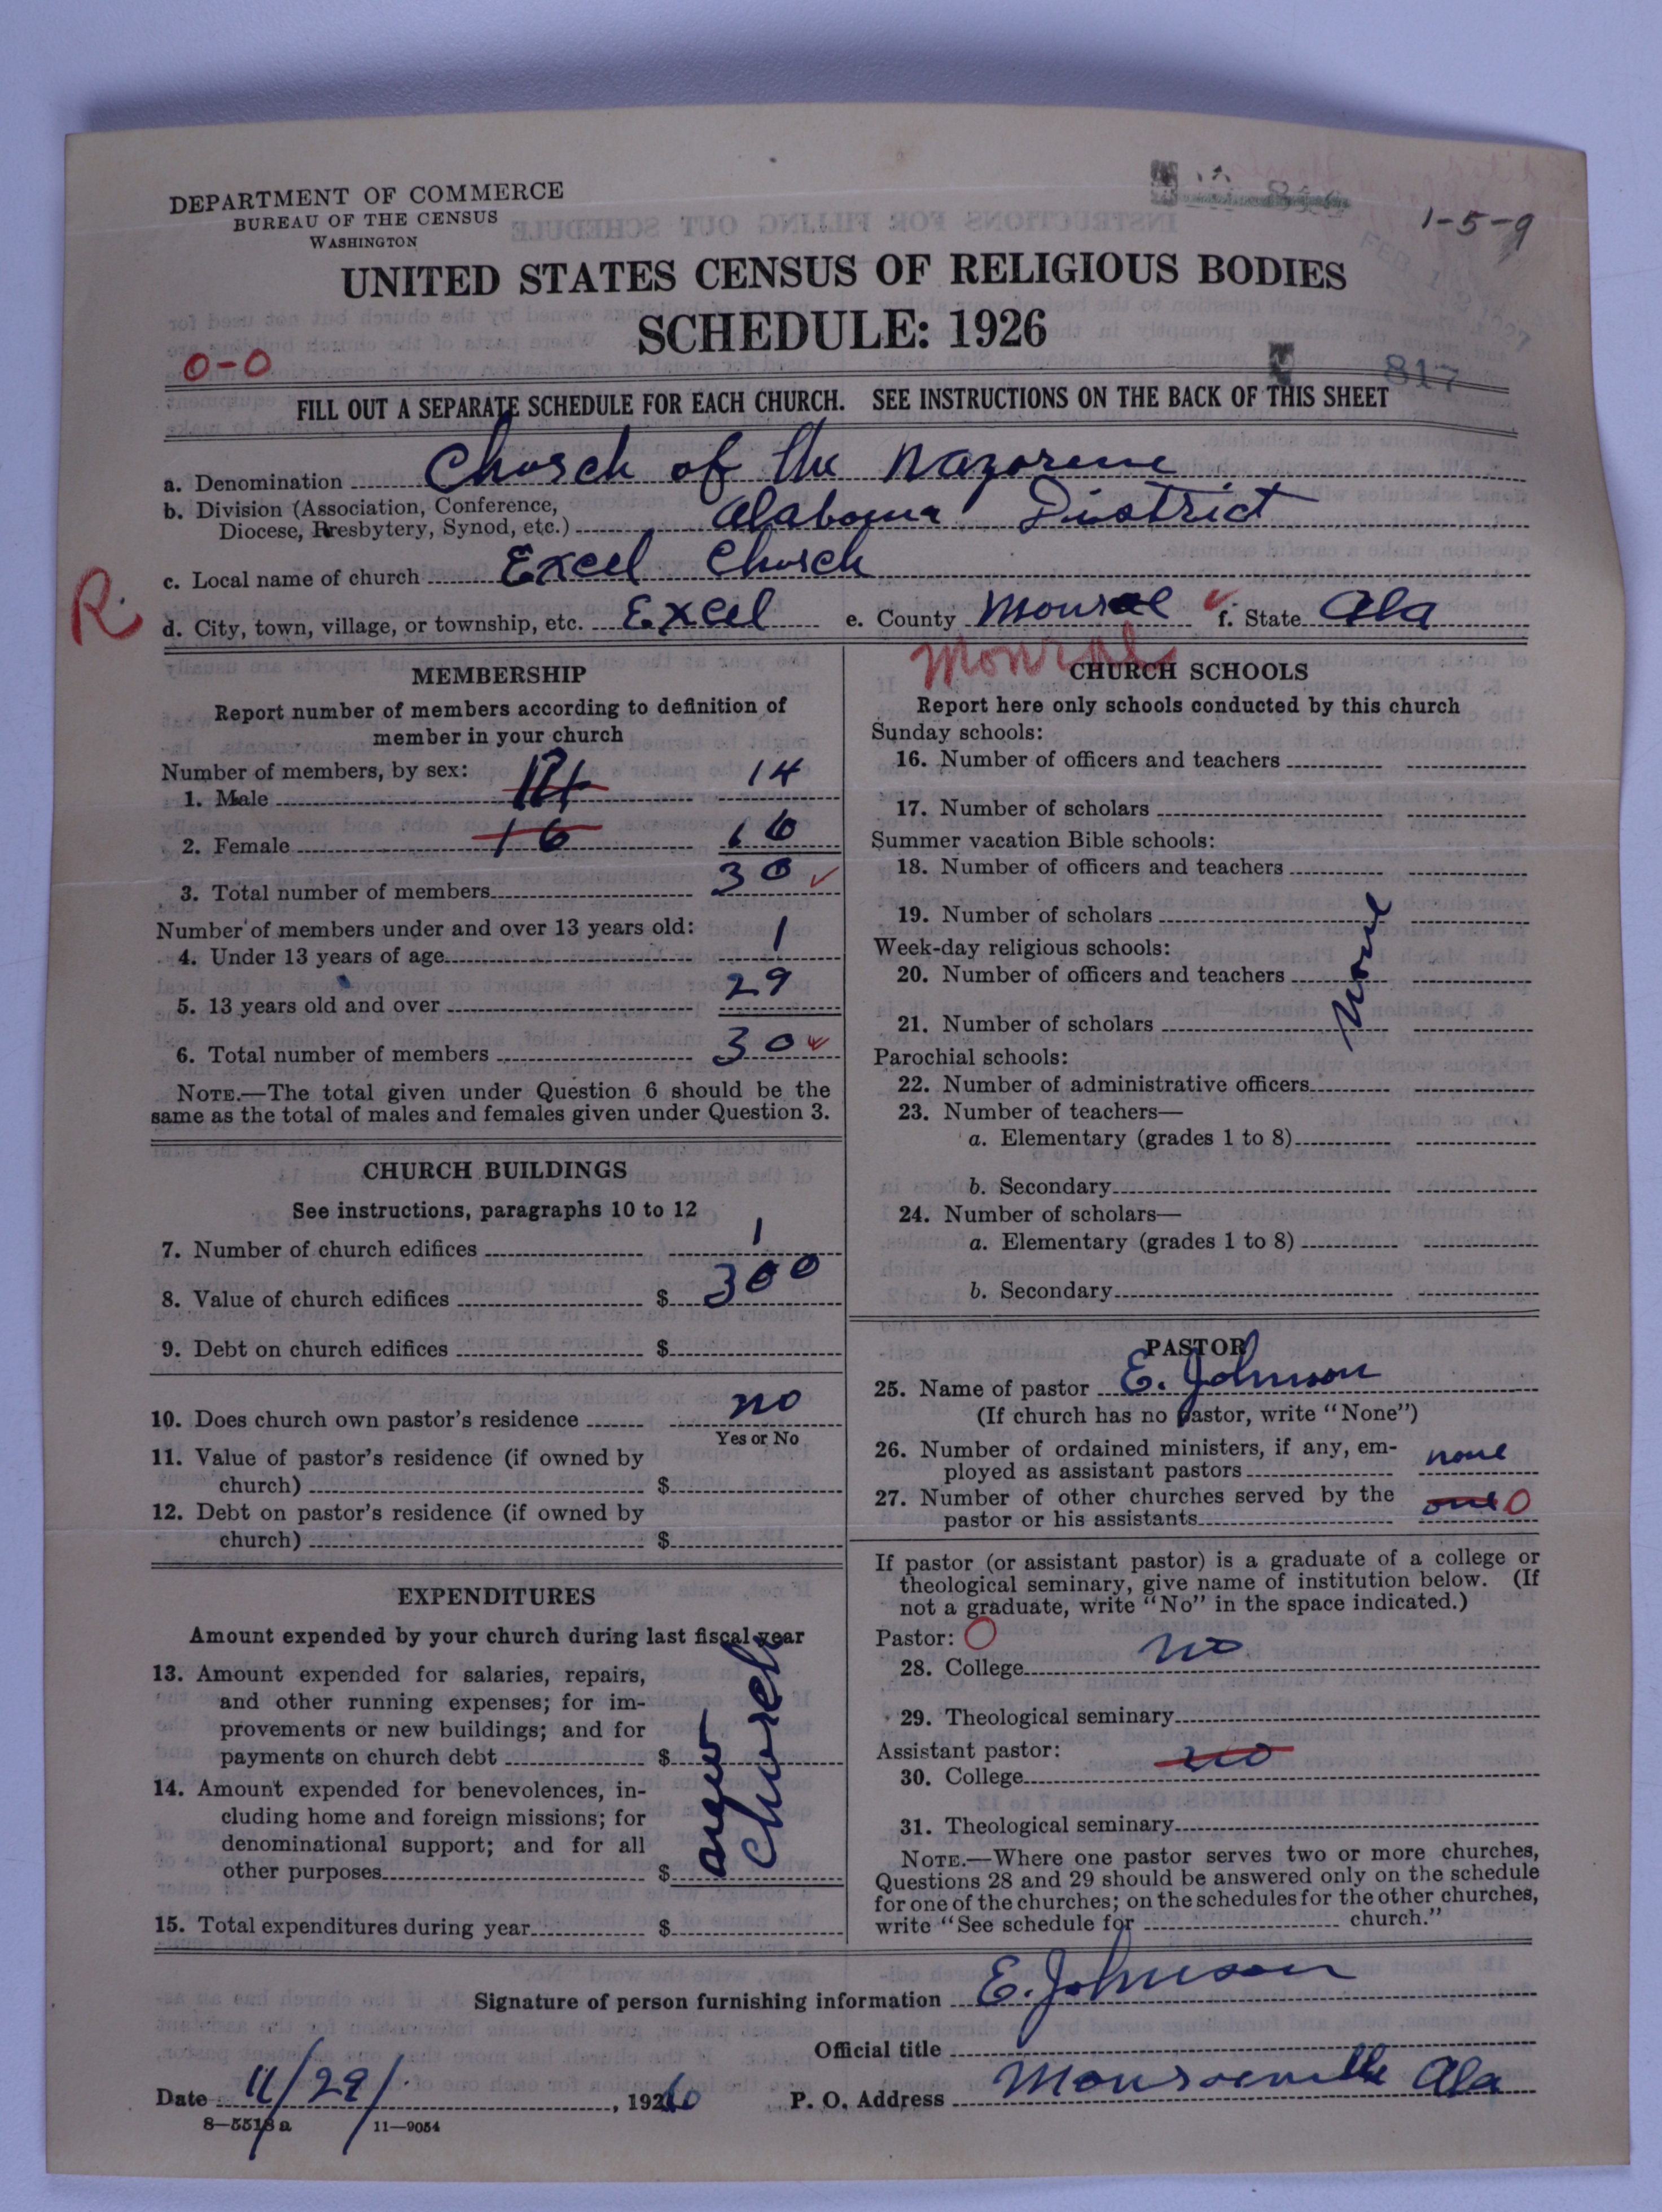 DEPARTMENT OF COMMERCE
BUREAU OF THE CENSUS
WASHINGTON
1-5-9
FEB 1 2 1927
UNITED STATES CENSUS OF RELIGIOUS BODIES
SCHEDULE: 1926
0-0
817
FILL OUT A SEPARATE SCHEDULE FOR EACH CHURCH. SEE INSTRUCTIONS ON THE BACK OF THIS SHEET
a. Denomination Church of the Nazorene
b. Division (Association, Conference,
Diocese, Presbytery, Synod, etc.) Alabama District
c. Local name of church Excel Church
R.
d. City, town, village, or township, etc. Excel e. County Monroe f. State Ala
MEMBERSHIP
Report number of members according to definition of
member in your church
Number of members, by sex:
1. Male 14 14
2. Female 16 16
3. Total number of members 30
Number of members under and over 13 years old:
4. Under 13 years of age 1
5. 13 years old and over 29
6. Total number of members 30
NOTE.—The total given under Question 6 should be the
same as the total of males and females given under Question 3.
CHURCH BUILDINGS
See instructions, paragraphs 10 to 12
7. Number of church edifices 1
8. Value of church edifices $ 300
9. Debt on church edifices $
10. Does church own pastor's residence no
Yes or No
11. Value of pastor's residence (if owned by
church) $
12. Debt on pastor's residence (if owned by
church) $
EXPENDITURES
Amount expended by your church during last fiscal year
13. Amount expended for salaries, repairs,
and other running expenses; for im-
provements or new buildings; and for
payments on church debt $
14. Amount expended for benevolences, in-
cluding home and foreign missions; for
denominational support; and for all
other purposes $
15. Total expenditures during year $
church
CHURCH SCHOOLS
Report here only schools conducted by this church
Sunday schools:
16. Number of officers and teachers
17. Number of scholars
Summer vacation Bible schools:
18. Number of officers and teachers
19. Number of scholars
Week-day religious schools:
20. Number of officers and teachers
21. Number of scholars
none
Parochial schools:
22. Number of administrative officers
23. Number of teachers—
a. Elementary (grades 1 to 8)
b. Secondary
24. Number of scholars—
a. Elementary (grades 1 to 8)
b. Secondary
PASTOR
25. Name of pastor E. Johnson
(If church has no pastor, write "None")
26. Number of ordained ministers, if any, em-
ployed as assistant pastors none
27. Number of other churches served by the
pastor or his assistants one 0
If pastor (or assistant pastor) is a graduate of a college or
theological seminary, give name of institution below. (If
not a graduate, write "No" in the space indicated.)
Pastor: 0
28. College no
29. Theological seminary
Assistant pastor:
30. College no
31. Theological seminary
NOTE.—Where one pastor serves two or more churches,
Questions 28 and 29 should be answered only on the schedule
for one of the churches; on the schedules for the other churches,
write "See schedule for church."
Signature of person furnishing information E. Johnson
Official title
Date 11/29/, 1926 P. O. Address Monroeville Ala
8—5513 a 11—9054